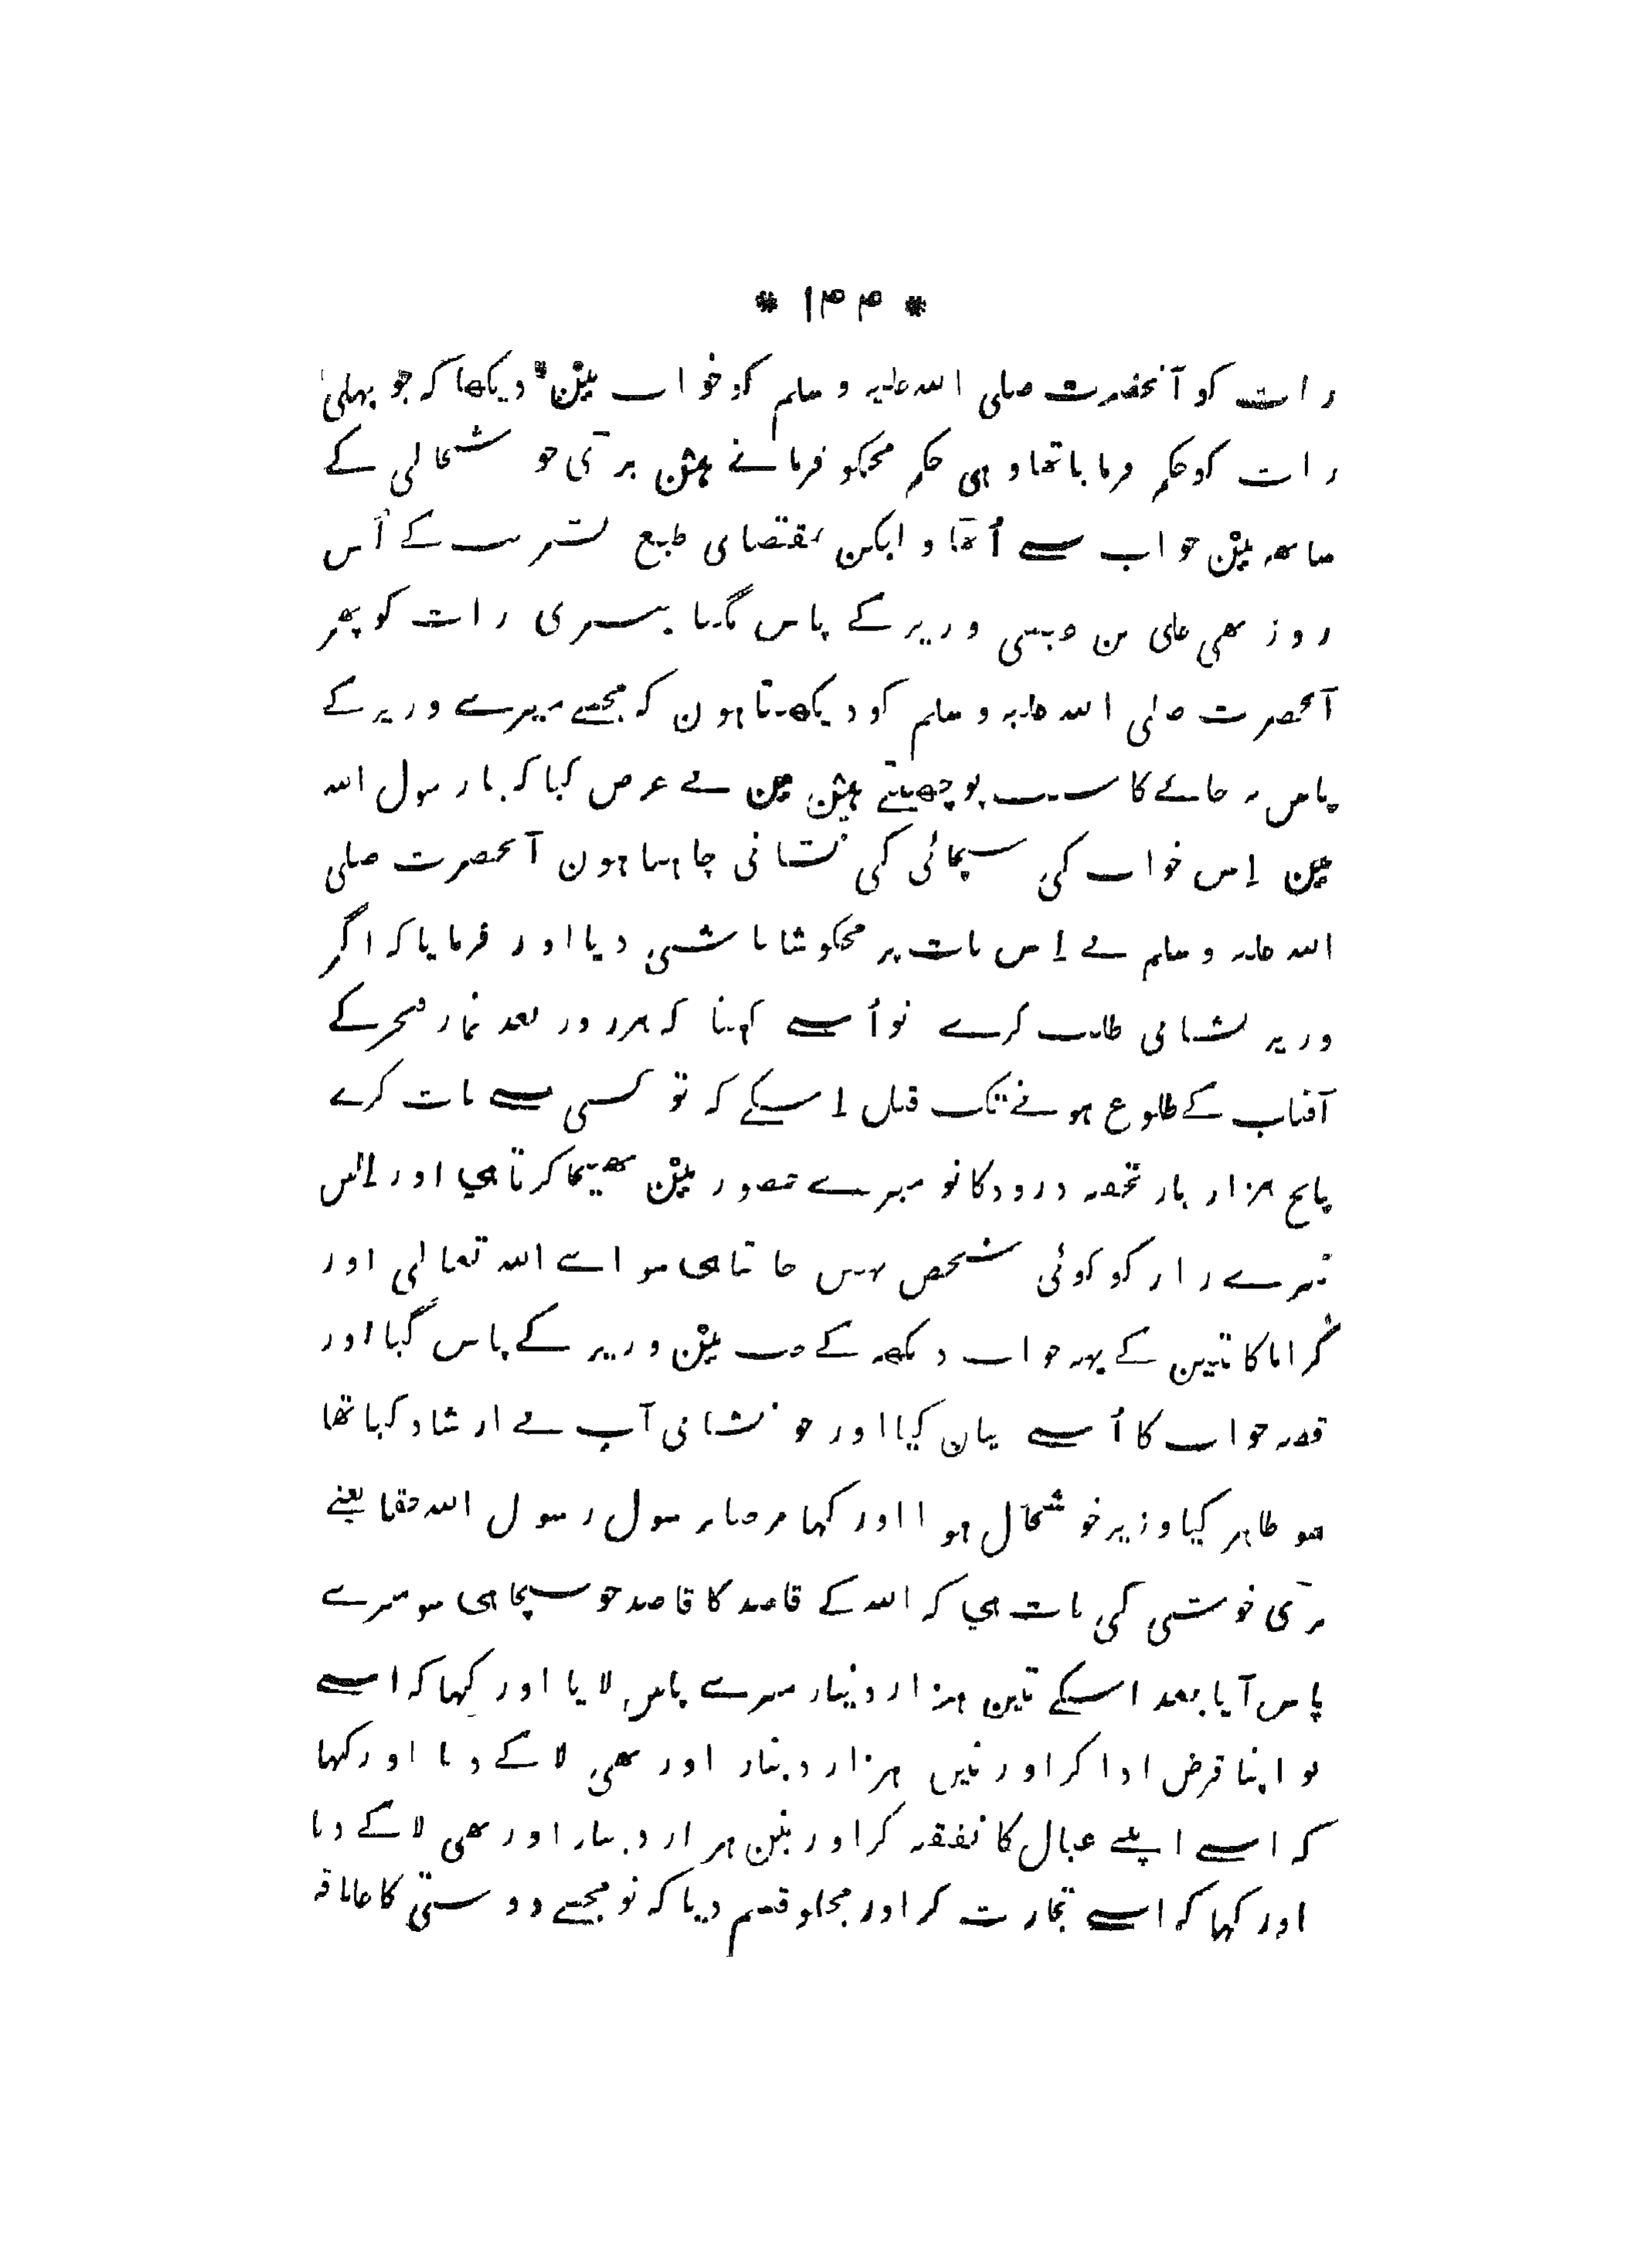 * ۱۴۴ *
رات کو آنحضرت صلی اللہ علیہ و سلم کو خواب مین دیکھا کہ جو پہلی
رات کو حکم فرمایا تھا وہی حکم مجکو فرمانے ہین بڑی خوشحالی کے
ساتھہ مین خواب سے اُٹھا ولیکن بمقتضای طبع بشریت کے اُس
روز بھی علی بن عیسی وزیر کے پاس نگیا تیسری رات کو پھر
آنحضرت صلی اللہ علیہ و سلم کو دیکھتا ہون کہ مجھسے میرے وزیر کے
پاس نہ جانے کا سبب پوچھتے ہین مین نے عرض کیا کہ یا رسول اللہ
مین اِس خواب کی سچائی کی نشانی چاہتا ہون آنحضرت صلی
اللہ علیہ و سلم نے اِس بات پر مجکو شاباشی دیا اور فرمایا کہ اگر
وزیر نشانی طلب کرے تو اُسے کہنا کہ ہر روز بعد نماز فجر کے
آفتاب کے طلوع ہونے تک قبل اِسکے کہ تو کسی سے بات کرے
پانچ ہزار بار تحفہ درود کا تو میرے حضور مین بھیجا کرتا ہی اور اِس
تیرے راز کو کوئی شخص نہین جانتا ہی سواے اللہ تعالی اور
کراما کاتبین کے یہہ خواب دیکھہ کے جب مین وزیر کے پاس گیا اور
قصہ خواب کا اُسے بیان کیا اور جو نشانی آپ نے ارشاد کیا تھا
سو ظاہر کیا وزیر خوشحال ہوا اور کہا مرحبا برسول رسول اللہ حقا یعنے
بڑی خوشی کی بات ہی کہ اللہ کے قاصد کا قاصد جو سچا ہی سو میرے
پاس آیا بعد اسکے تین ہزار دینار میرے پاس لایا اور کہا کہ اسے
تو اپنا قرض ادا کر اور تین ہزار دینار اور بھی لا کے دیا اور کہا
کہ اسے اپنے عیال کا نفقہ کر اور تین ہزار دینار اور بھی لا کے دیا
اور کہا کہ اسے تجارت کر اور مجکو قسم دیا کہ تو مجھسے دوستی کا علاقہ